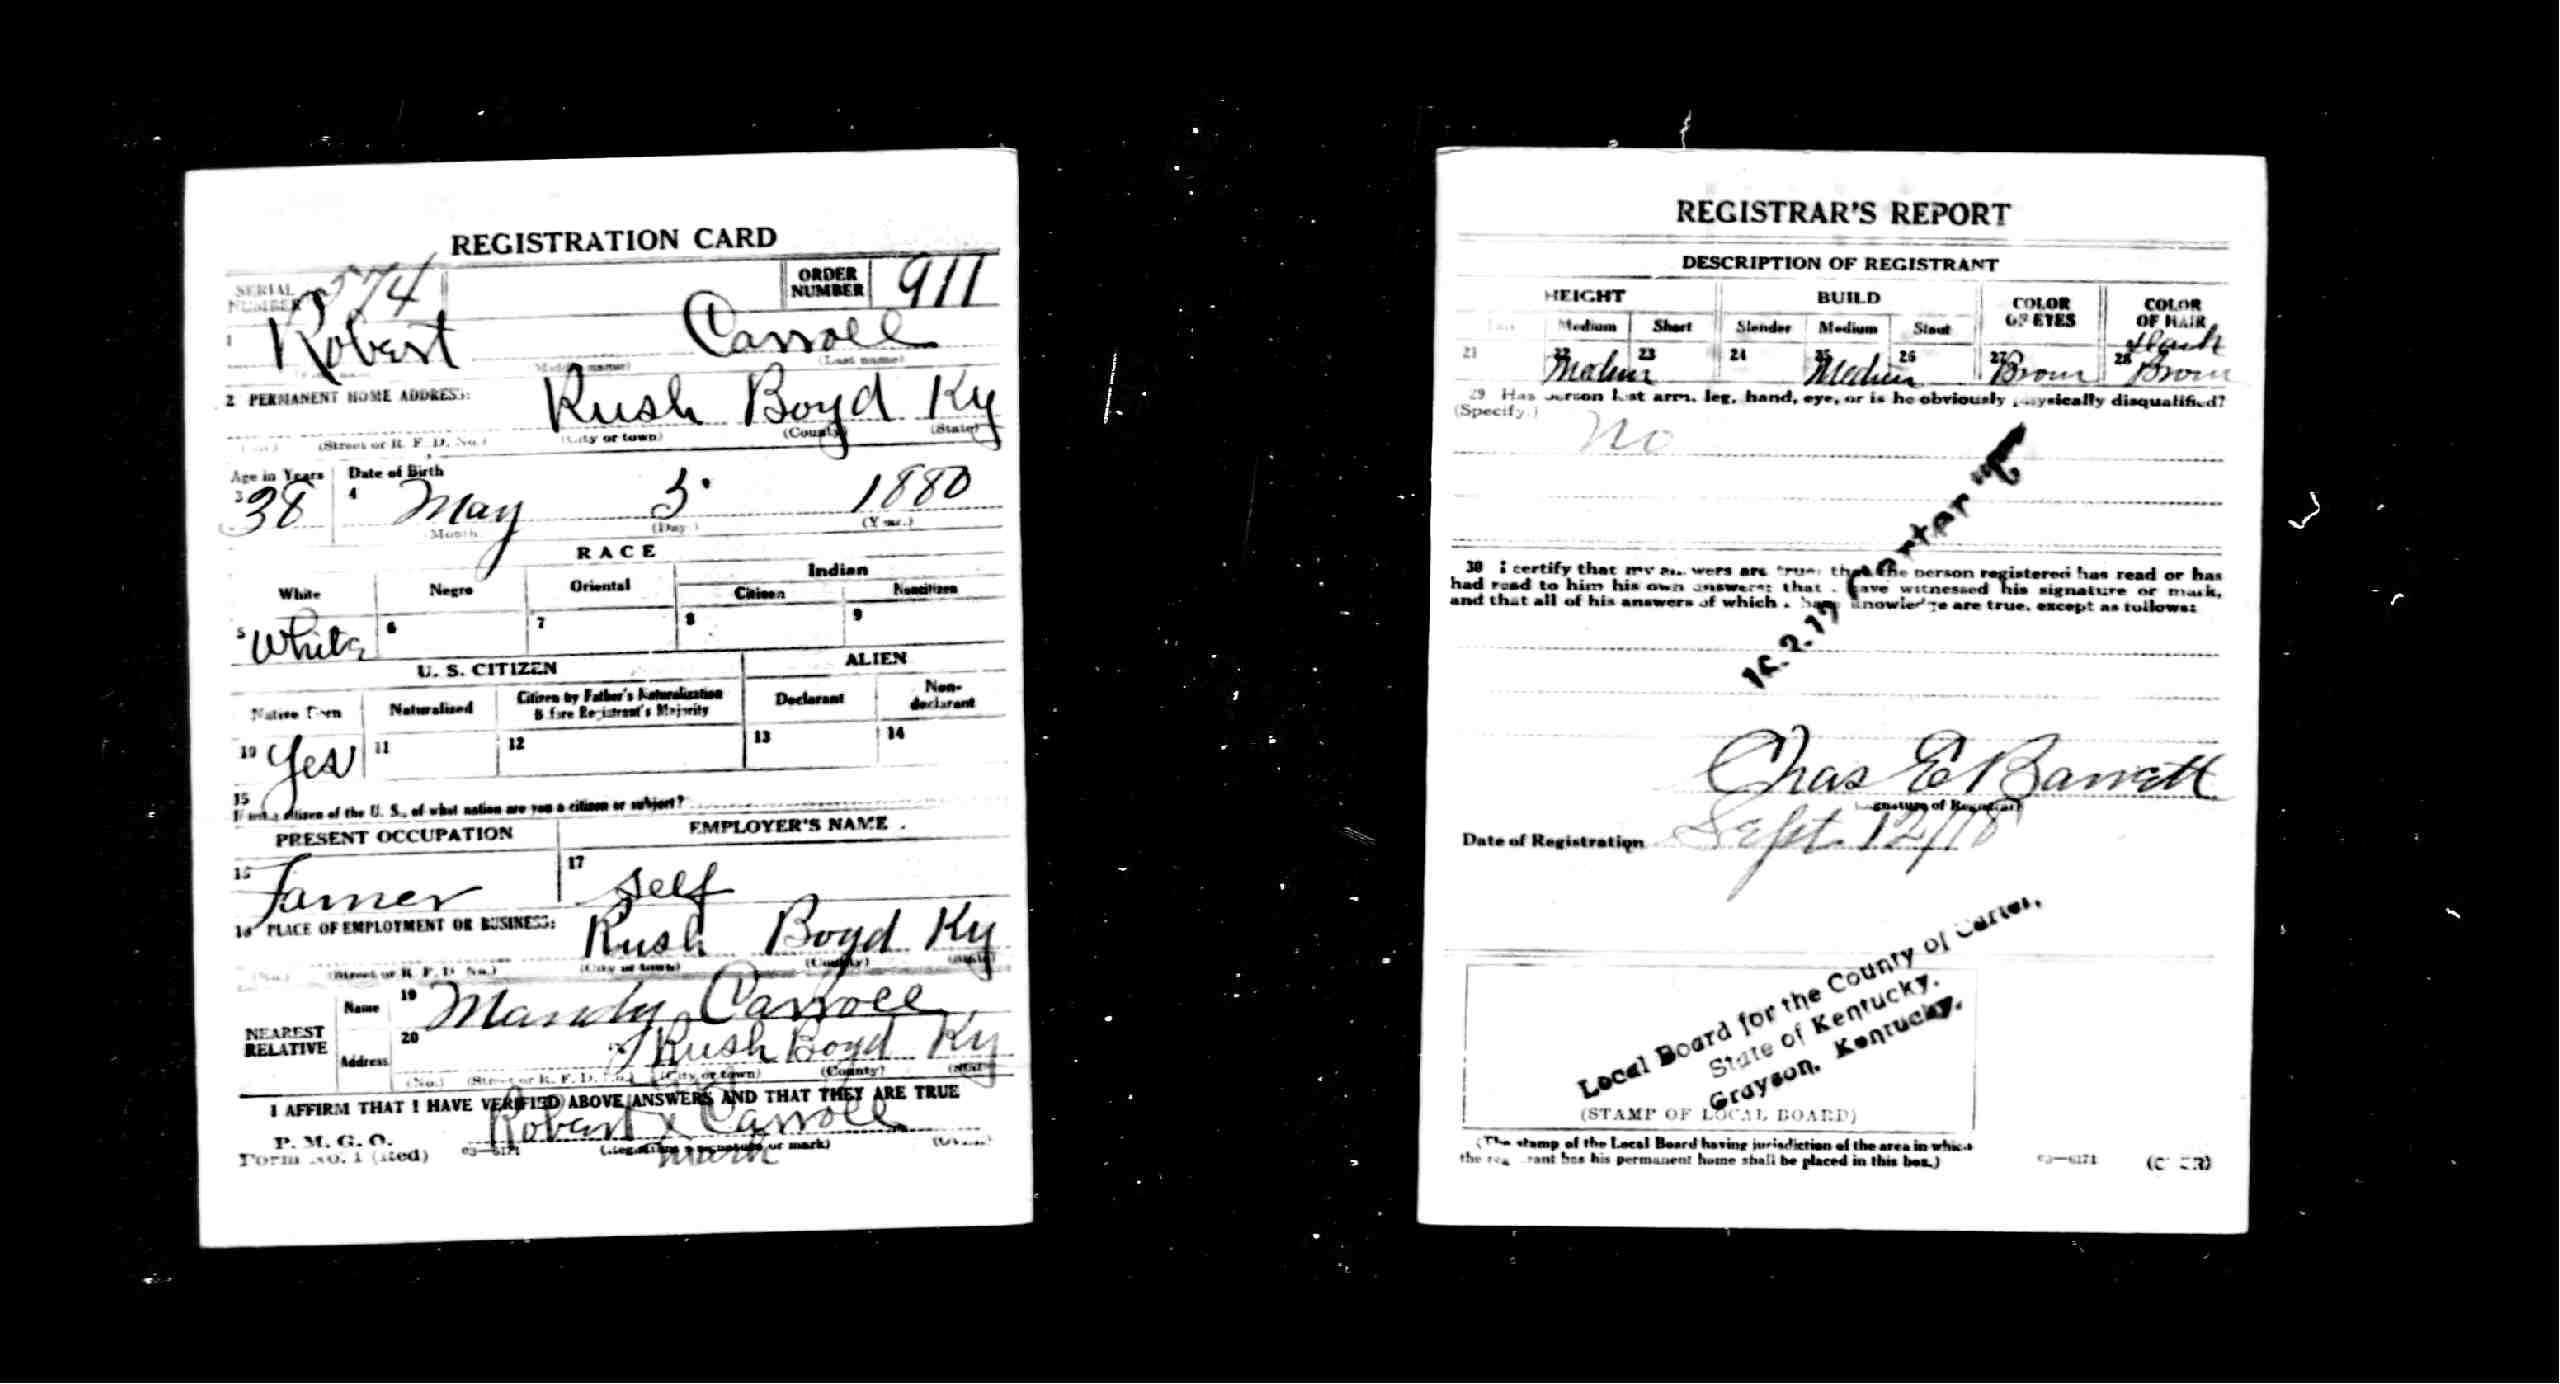 REGISTRATION CARD
SERIAL NUMBER 574 ORDER NUMBER 911
1 Robert Carroll
(Middle name) (Last name)
2 PERMANENT HOME ADDRESS:
Rush Boyd Ky
(Street or R. F. D. No.) (City or town) (County) (State)
Age in Years Date of Birth
3 38 4 May 3 1880
Month (Day) (Year.)
RACE
White Negro Oriental Indian
Citizen Noncitizen
5 White 6 7 8 9
U. S. CITIZEN ALIEN
Native Born Naturalized Citizen by Father's Naturalization Before Registrant's Majority Declarant Non-declarant
10 Yes 11 12 13 14
15
If not a citizen of the U. S., of what nation are you a citizen or subject?
PRESENT OCCUPATION EMPLOYER'S NAME
16 Farmer 17 Self
18 PLACE OF EMPLOYMENT OR BUSINESS:
Rush Boyd Ky
(No.) (Street or R. F. D. No.) (City or town) (County) (State)
NEAREST RELATIVE
Name 19 Mandy Carroll
Address 20 Rush Boyd Ky
(No.) (Street or R. F. D. No.) (City or town) (County) (State)
I AFFIRM THAT I HAVE VERIFIED ABOVE ANSWERS AND THAT THEY ARE TRUE
Robert x Carroll
P. M. G. O.
Form No. 1 (Red) 03—6171 (Registrant's signature or mark) (OVER)
mark
REGISTRAR'S REPORT
DESCRIPTION OF REGISTRANT
HEIGHT BUILD COLOR OF EYES COLOR OF HAIR
Medium Short Slender Medium Stout
21 22 Medium 23 24 25 Medium 26 27 Brown 28 Dark Brown
29 Has person lost arm, leg, hand, eye, or is he obviously physically disqualified?
(Specify.)
No
30 I certify that my answers are true; that the person registered has read or has
had read to him his own answers; that I have witnessed his signature or mark,
and that all of his answers of which I have knowledge are true, except as follows:
Chas E Barrett
(Signature of Registrar)
Date of Registration Sept. 12/18
Local Board for the County of Carter,
State of Kentucky.
Grayson, Kentucky.
(STAMP OF LOCAL BOARD)
(The stamp of the Local Board having jurisdiction of the area in which
the registrant has his permanent home shall be placed in this box.)
03—6171 (OVER)